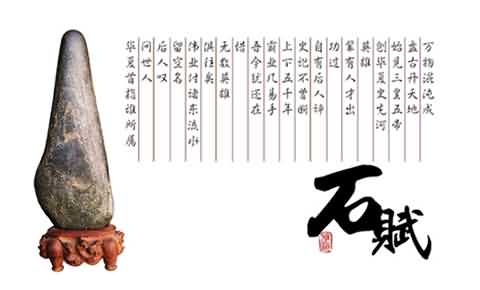 万物混沌成
盘古开天地
始见三皇五帝
创华夏史先河
英雄
辈有人才出
功过
自有后人评
史记不曾断
上下五千年
霸业几易手
吾今犹还在
惜
无数英雄
俱往矣
伟业付诸东流水
留空名
后人叹
问世人
华夏首指谁所属
石賦